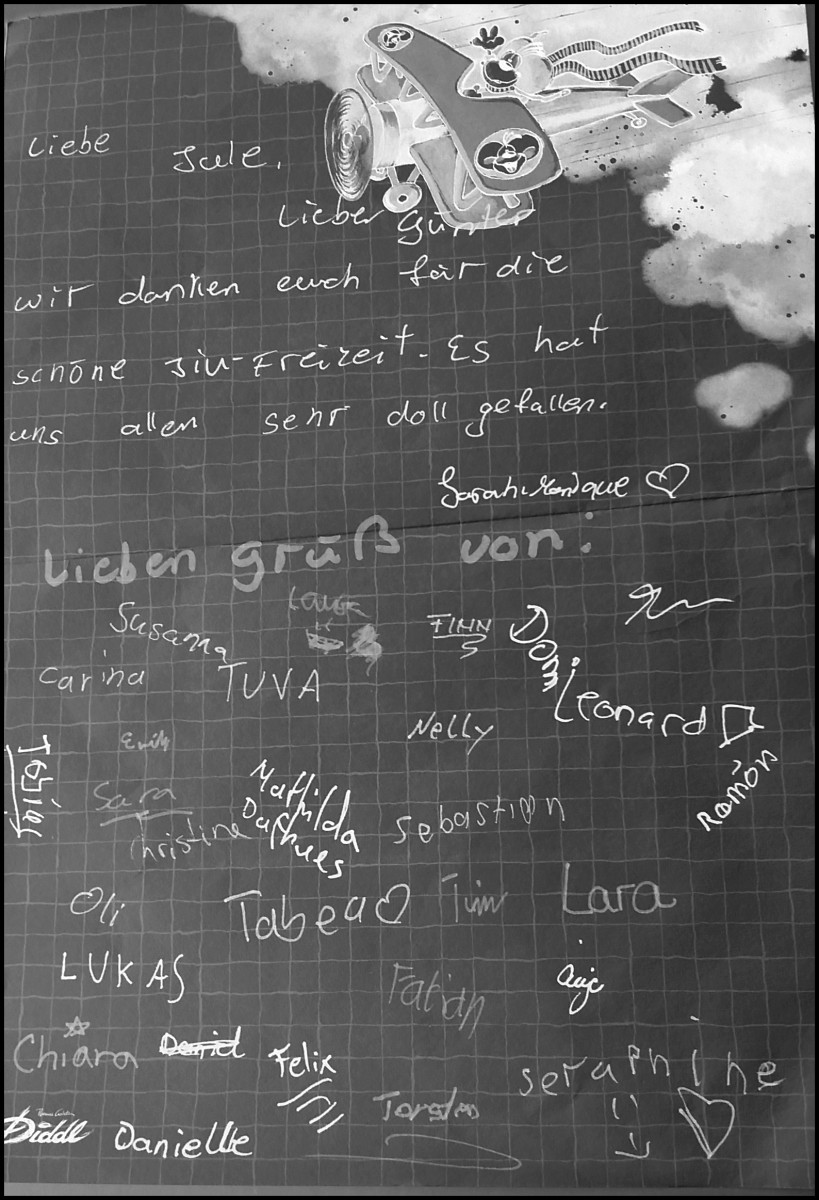 Liebe Jule,
Lieber Günter
wir danken euch für die
schöne Jiu-Freizeit. Es hat
uns allen sehr doll gefallen.
Sarah-Monique
Lieben gruß von:
Susanna
Laura
FINN
Domi
Carina
TUVA
Leonard
Nelly
Emily
Ramón
Sara
Mathilda
Daphues
Christine
Sebastian
Oli
Tabea
Tim
Lara
LUKAS
Fabian
Chiara
Daniel
Felix
seraphine
Torsten
Diddl
Danielle